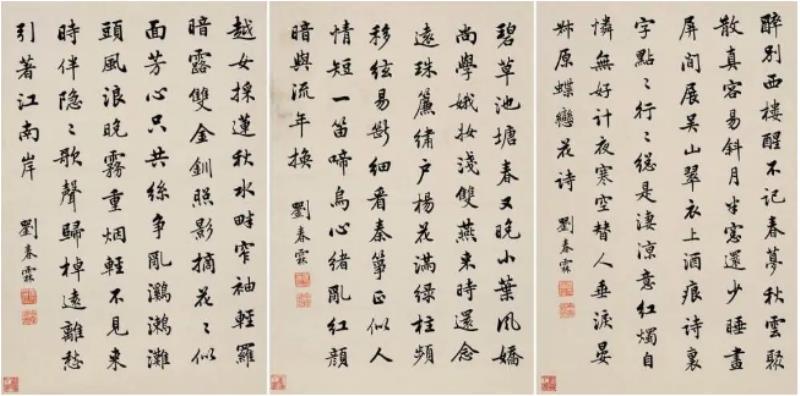 醉别西樓醒不記春夢秋雲聚
散真容易斜月半窓還少睡畫
屏間展吳山翠衣上酒痕詩裏
字點〻行〻總是淒涼意紅燭自
憐無好計夜寒空替人垂淚晏
叔原蝶戀花詩
劉春霖
碧草池塘春又晚小葉風嬌
尚學娥妝淺雙燕来時還念
遠珠簾繡户楊花滿緑柱頻
移絃易斷細看秦箏正似人
情短一笛啼烏心緒亂紅顔
暗與流年換
劉春霖
越女採蓮秋水畔窄袖輕羅
暗露雙金釧照影摘花〻似
面芳心只共絲争亂鸂鶒灘
頭風浪晚霧重烟輕不見来
時伴隐〻歌聲歸棹遠離愁
引著江南岸
劉春霖